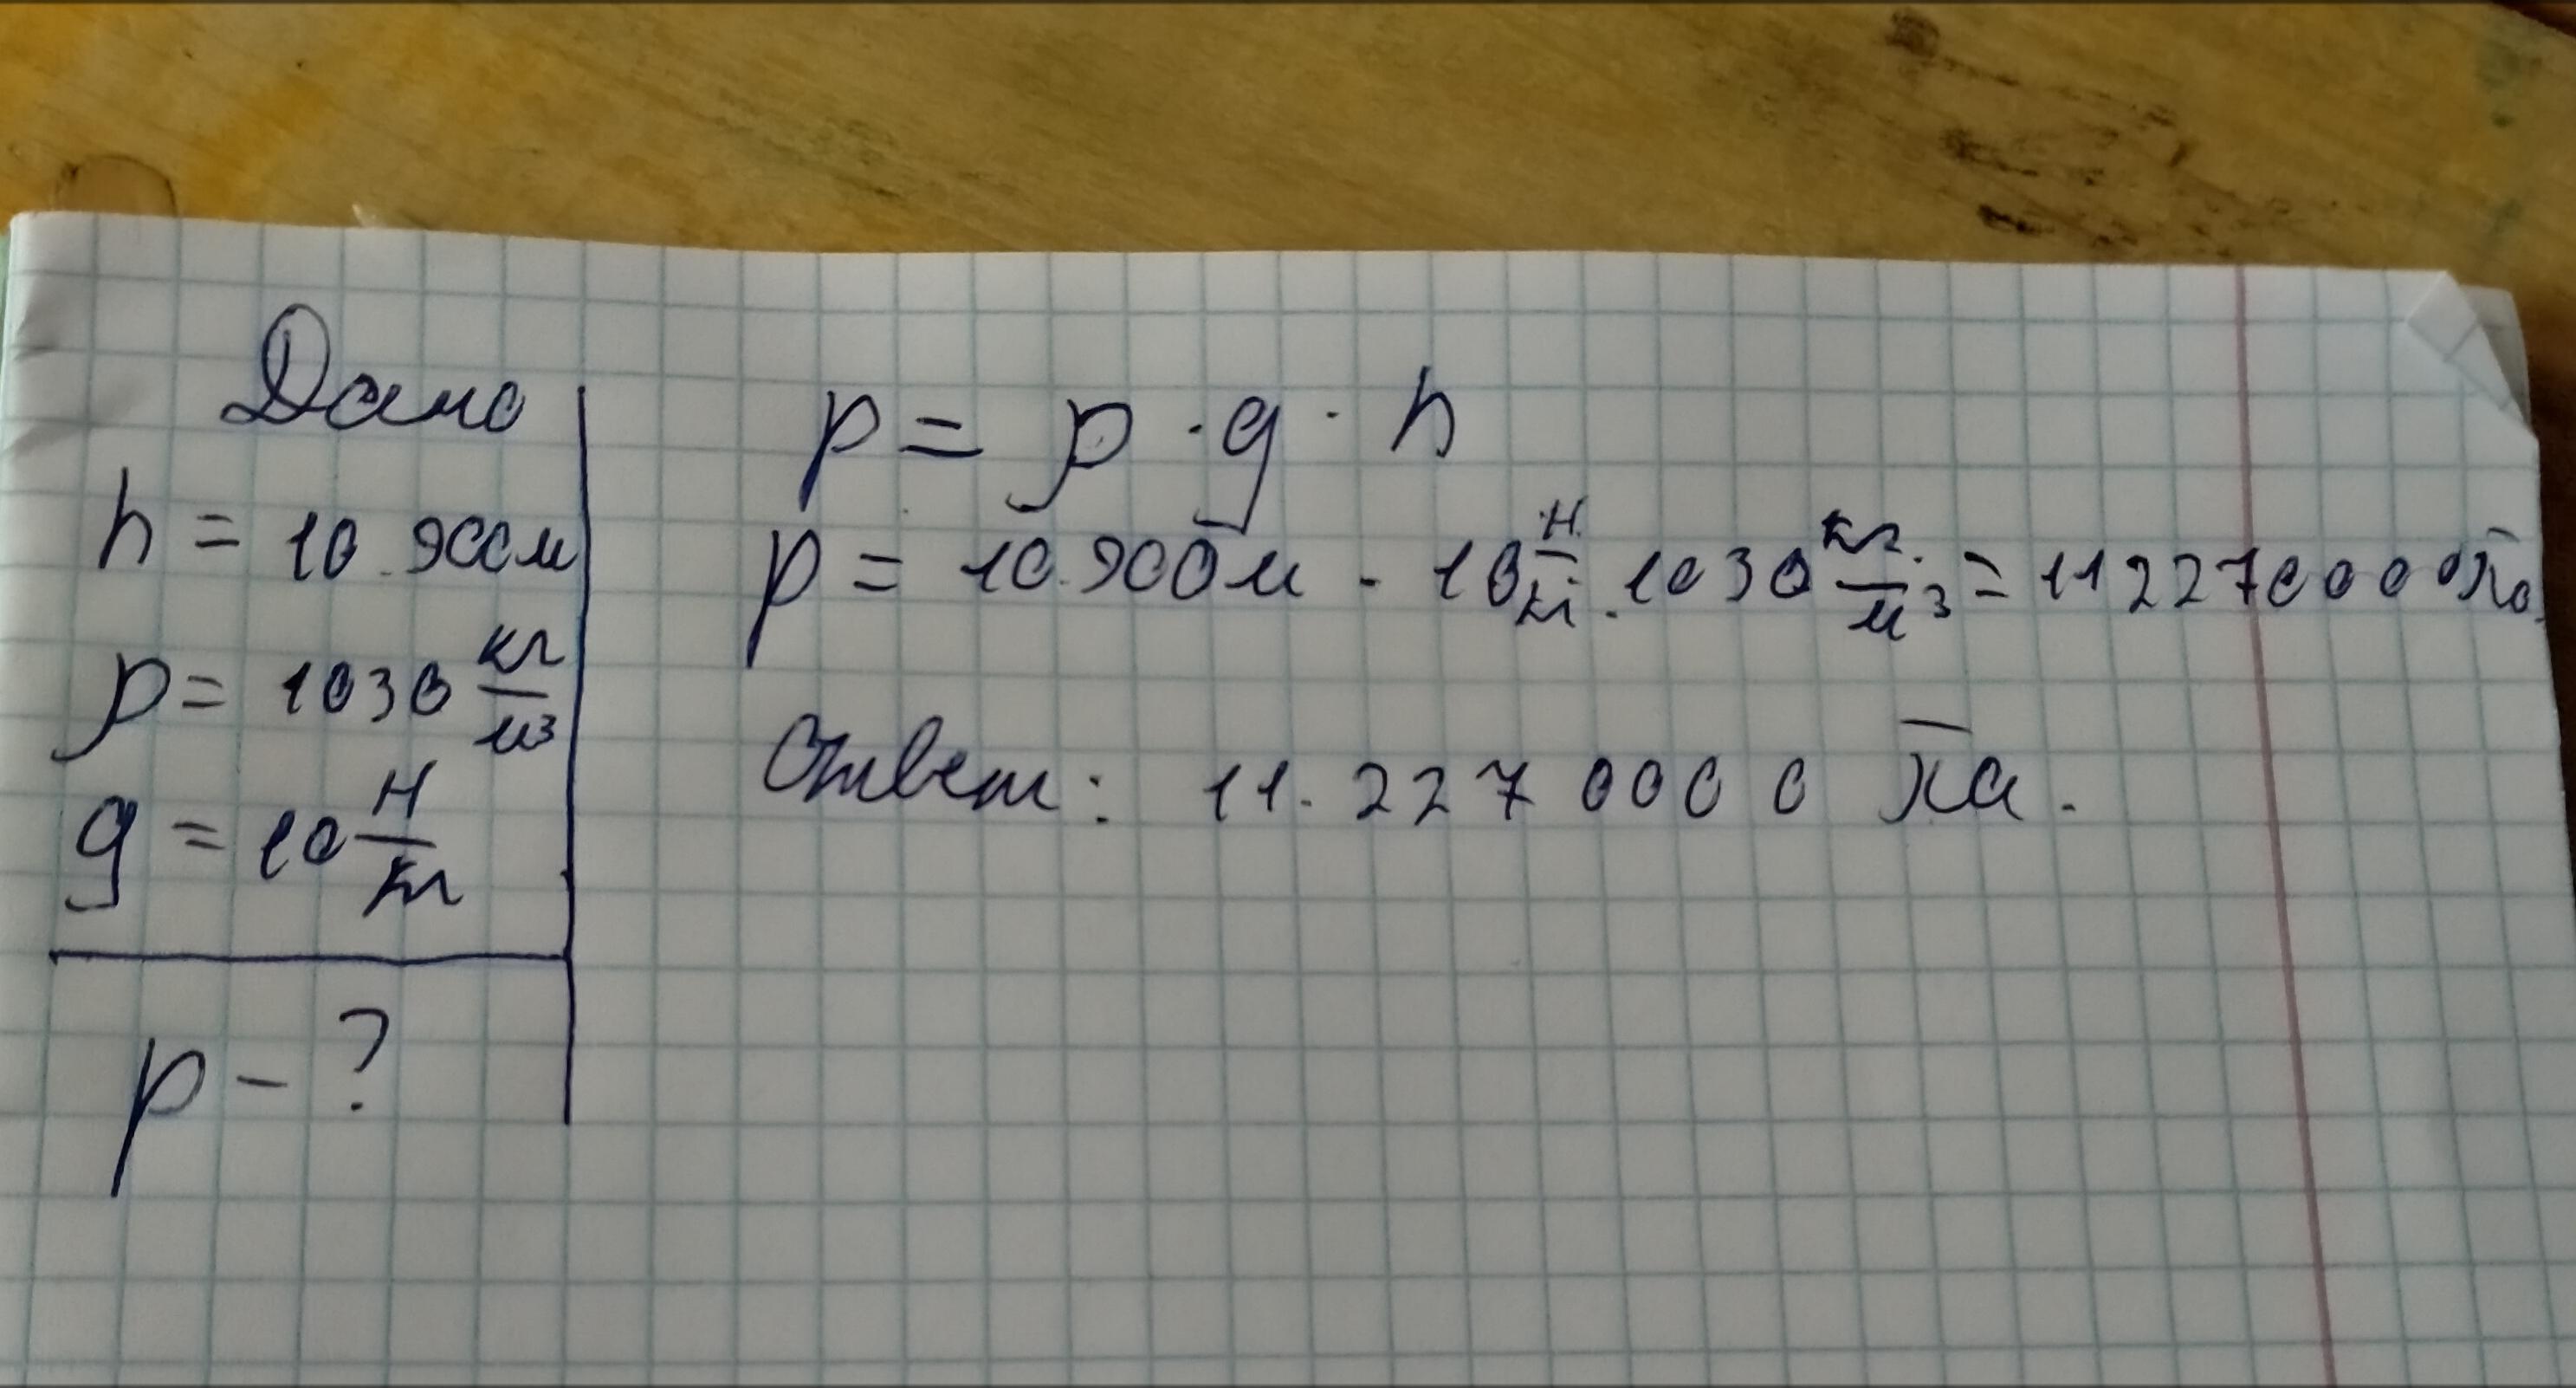 Дано
h = 10.900м
ρ = 1030 кг/м3
g = 10 Н/кг
p - ?
p = ρ · g · h
p = 10.900м · 10 Н/кг · 1030 кг/м3 = 112270000 Па.
Ответ: 11.2270000 Па.